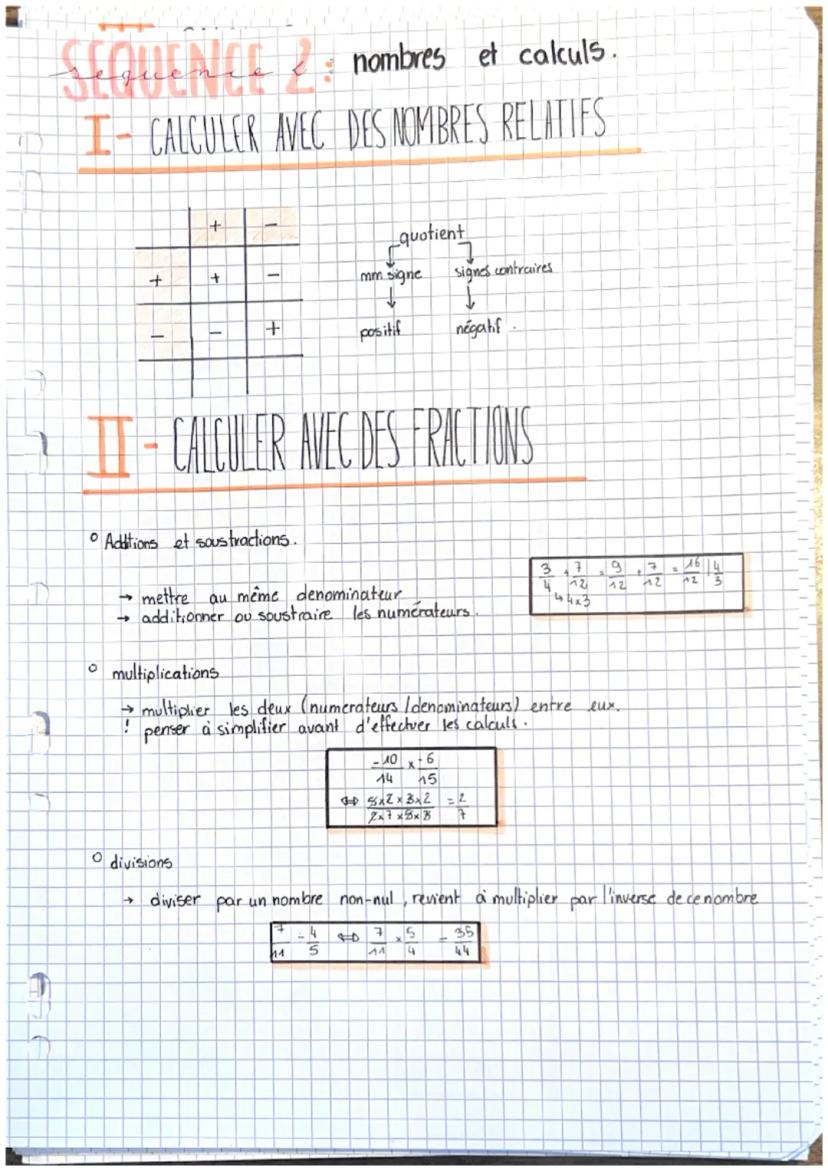 SEQUENCE 2 : nombres et calculs.
sequence 2
I - CALCULER AVEC DES NOMBRES RELATIFS
+ -
+ + -
- - +
quotient
mm signe signes contraires
positif négatif.
II - CALCULER AVEC DES FRACTIONS
° Additions et soustractions.
→ mettre au même denominateur
→ additionner ou soustraire les numérateurs.
3/4 + 7/12 = 9/12 + 7/12 = 16/12 | 4/3
↳ 4x3
° multiplications
→ multiplier les deux (numerateurs / denominateurs) entre eux.
! penser à simplifier avant d'effectuer les calculs.
-10/14 x -6/15
⇔ 5x2x3x2 / 2x7x5x3 = 2/7
° divisions
→ diviser par un nombre non-nul, revient à multiplier par l'inverse de ce nombre
7/11 ÷ 4/5 ⇔ 7/11 x 5/4 = 35/44